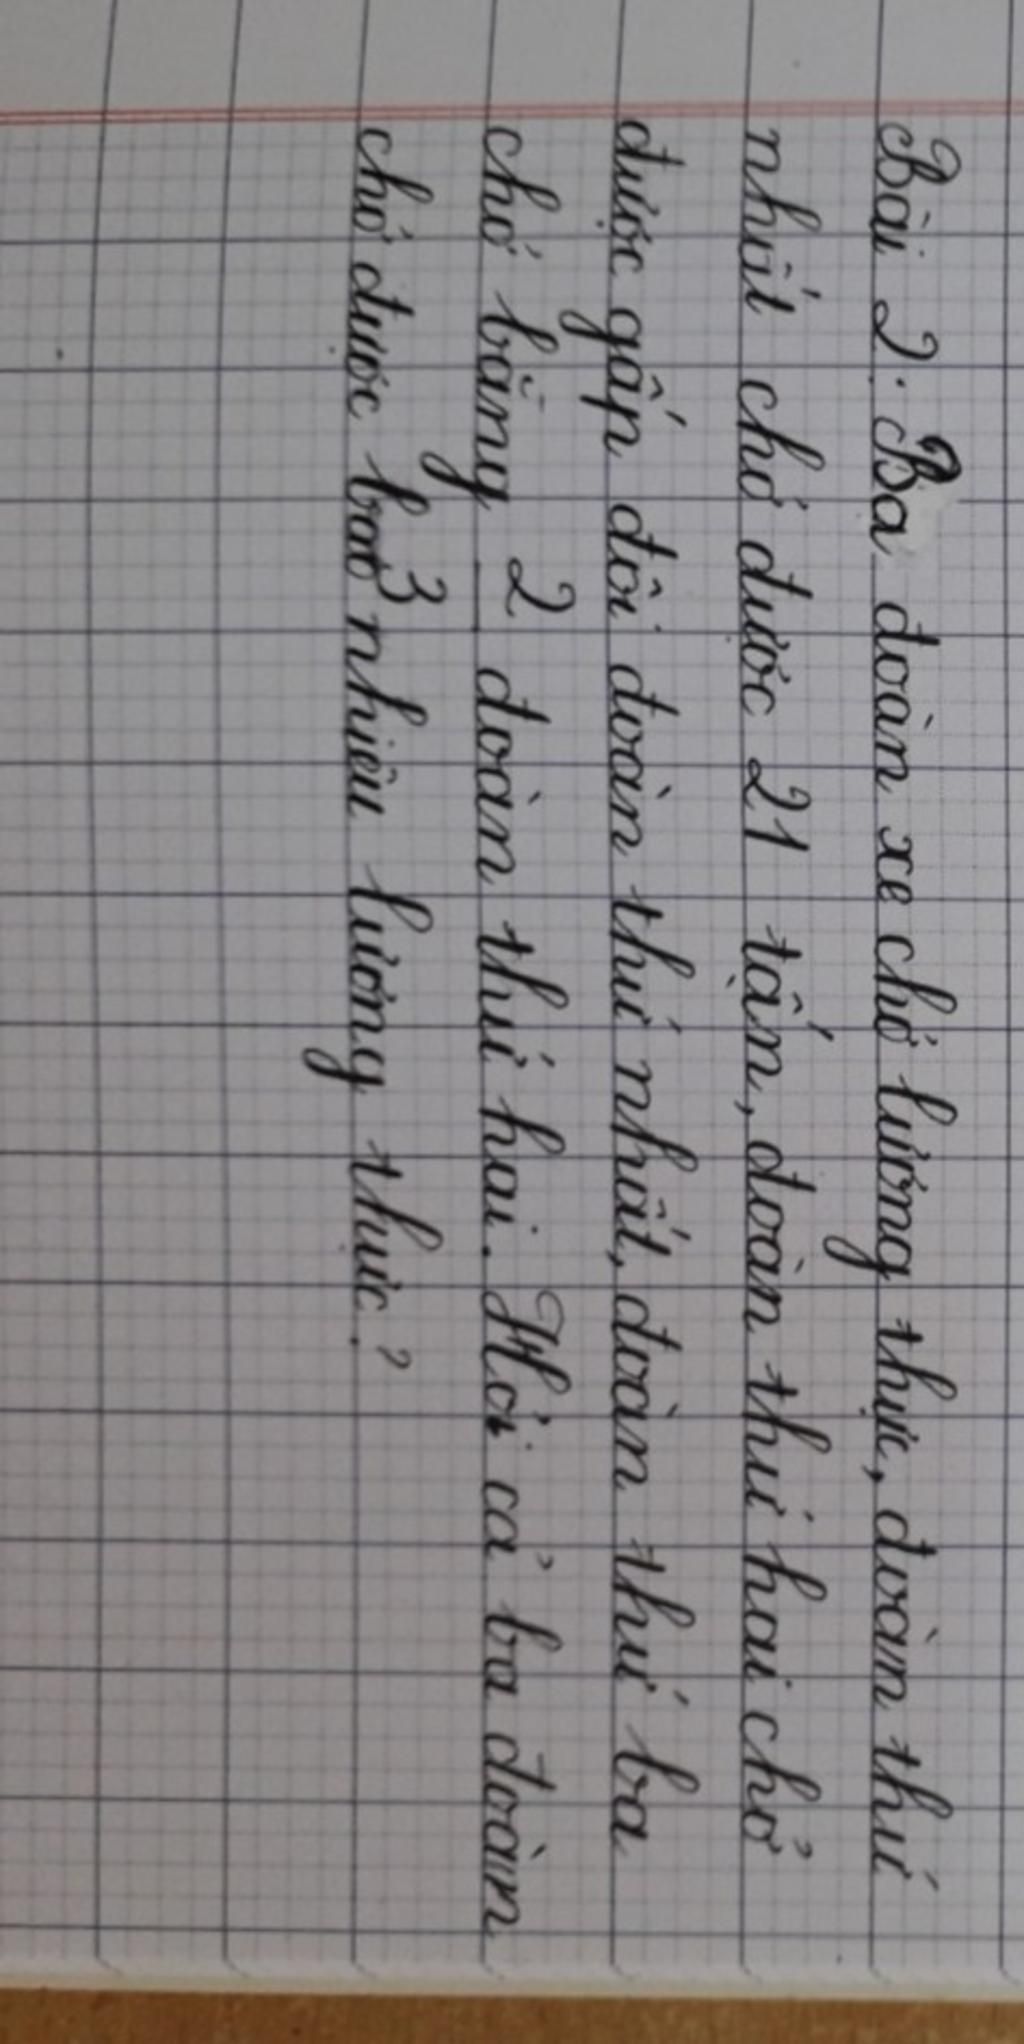 Bài 2: Ba đoàn xe chở lương thực, đoàn thứ
nhất chở được 21 tấn, đoàn thứ hai chở
được gấp đôi đoàn thứ nhất, đoàn thứ ba
chở bằng 2/3 đoàn thứ hai. Hỏi cả ba đoàn
chở được bao nhiêu lương thực?